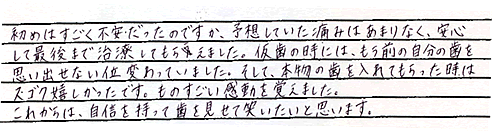 初めはすごく不安だったのですが、予想していた痛みはあまりなく、安心
して最後まで治療してもらえました。仮歯の時には、もう前の自分の歯を
思い出せない位変わっていました。そして、本物の歯を入れてもらった時は
スゴク嬉しかったです。ものすごい感動を覚えました。
これからは、自信を持って歯を見せて笑いたいと思います。